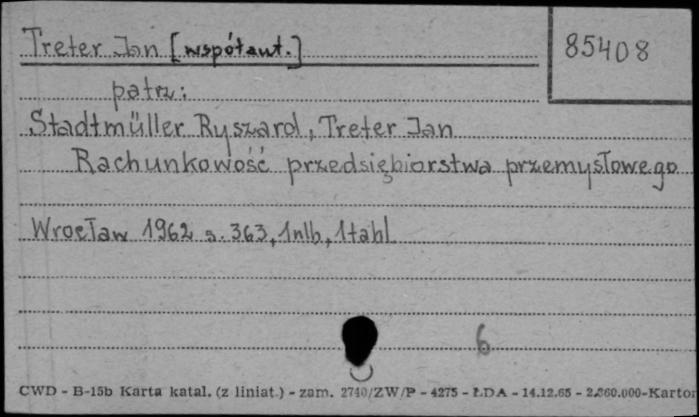 Treter Jan [współaut.]
85408
patrz:
Stadtmüller Ryszard, Treter Jan
Rachunkowość przedsiębiorstwa przemysłowego
Wrocław 1962 s. 363, 1nlb, 1tabl
6
CWD - B-15b Karta katal. (z liniat.) - zam. 2740/ZW/P - 4275 - ŁDA - 14.12.65 - 2.860.000-Karton